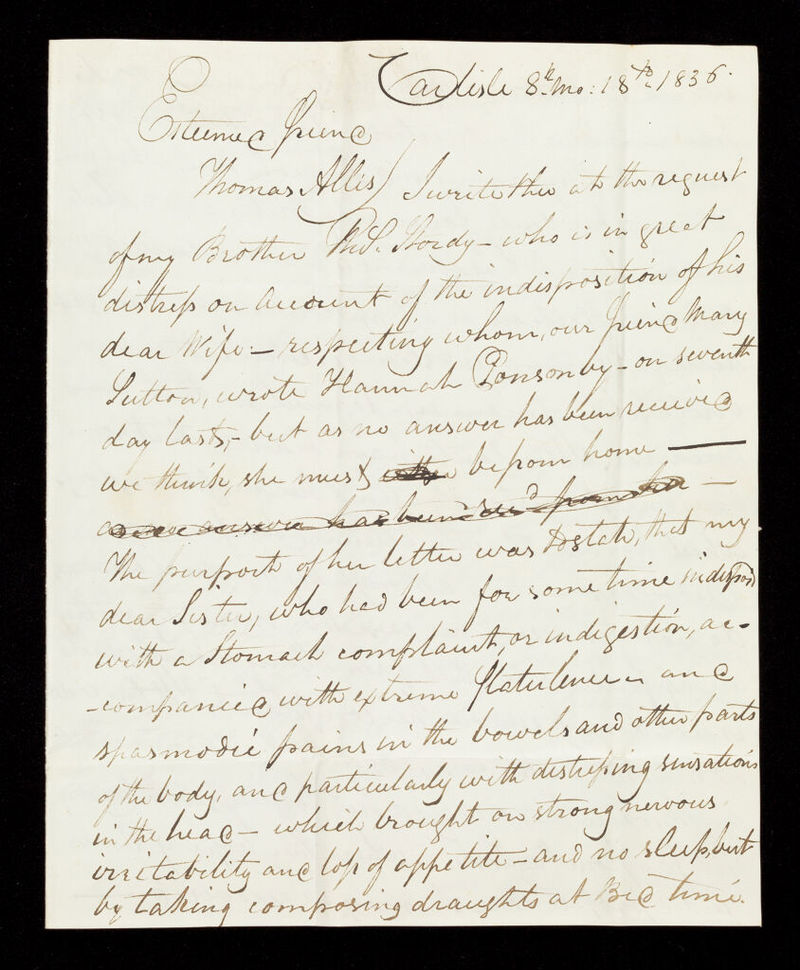 Carlisle 8th. Mo: 18th. 1836.
Esteemed Friend
Thomas Allis) I write thee at the request
of my Brother Thos. Hordy – who is in great
distress on Account of the indisposition of his
dear Wife: – respecting whom, our friend Mary
Sutton, wrote Hannah Ponsonby – on seventh
day last, – but as no answer has been received
we think, she must be from home —
as no answer has been rec'd from her –
The purport of her letter was to state, that my
dear Sister, who had been for some time indisposd
with a Stomach complaint, or indigestion, ac-
-companied with extreme flatulence – and
spasmodic pains in the bowels and other parts
of the body, and particularly with distressing sensations
in the head – which brought on strong nervous
irritability and loss of appetite – and no sleep, but
by taking composing draughts at Bed time.